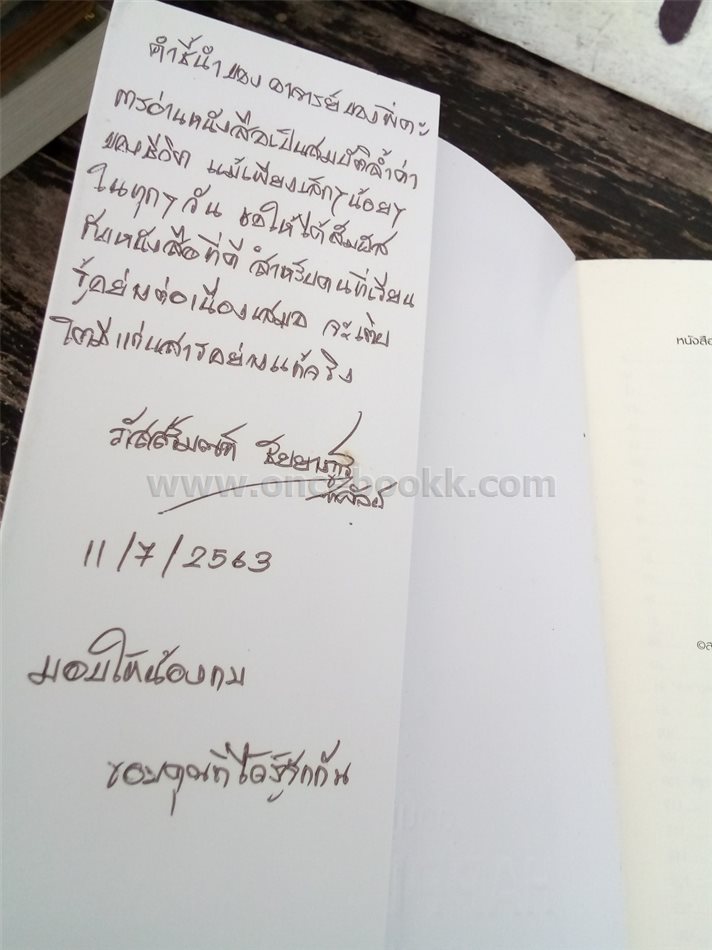 คำชี้นำของ อาจารย์ของพี่คะ
การอ่านหนังสือเป็นสมบัติล้ำค่า
ของชีวิต แม้เพียงเล็กๆน้อยๆ
ในทุกๆวัน ขอให้ได้สัมผัส
กับหนังสือที่ดี สำหรับคนที่เรียน
รู้อย่างต่อเนื่องเสมอ จะเติบ
โตมีแก่นสารอย่างแท้จริง
11/7/2563
มอบให้น้องกบ
ขอบคุณที่ได้รู้จักกัน
www.oncebookk.com
หนังสือ
©ส